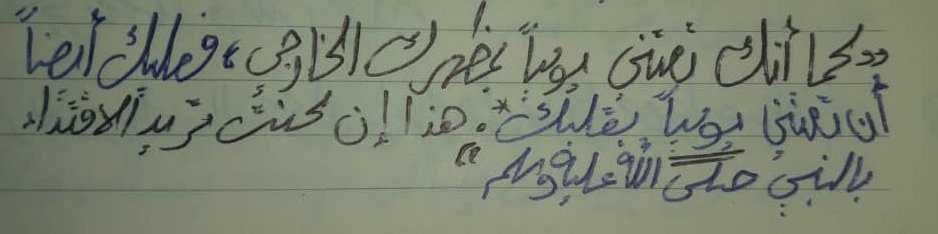 "كما أنك تعتني يومياً بمظهرك الخارجي، فعليك أيضاً
أن تعتني يومياً بقلبك*. هذا إن كنت تريد الاقتداء
بالنبي صلى الله عليه وسلم"